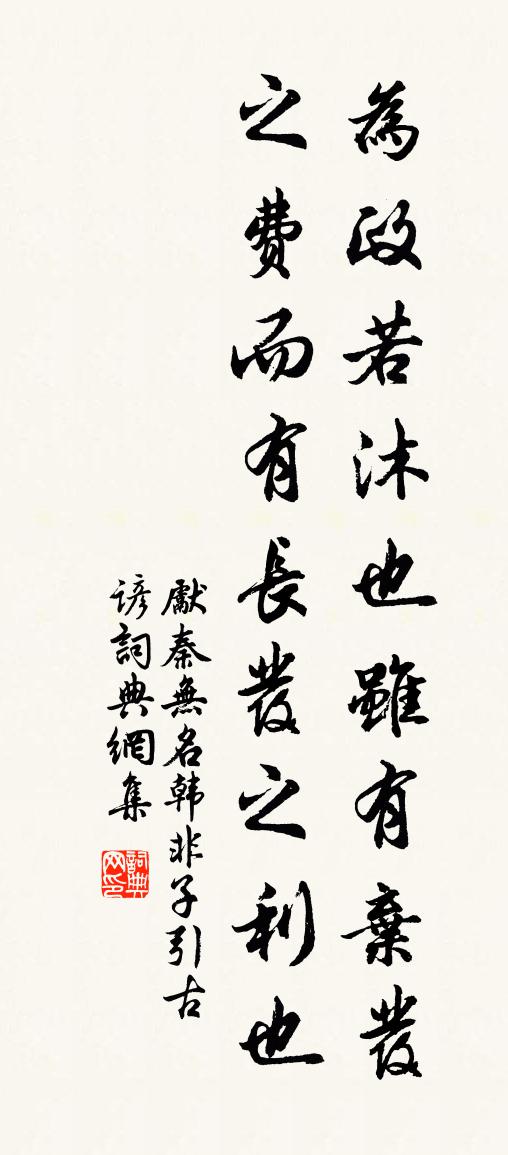 為政若沐也雖有棄發
之費而有長發之利也
獻秦無名韩非子引古
諺詞典網集
詞典网印